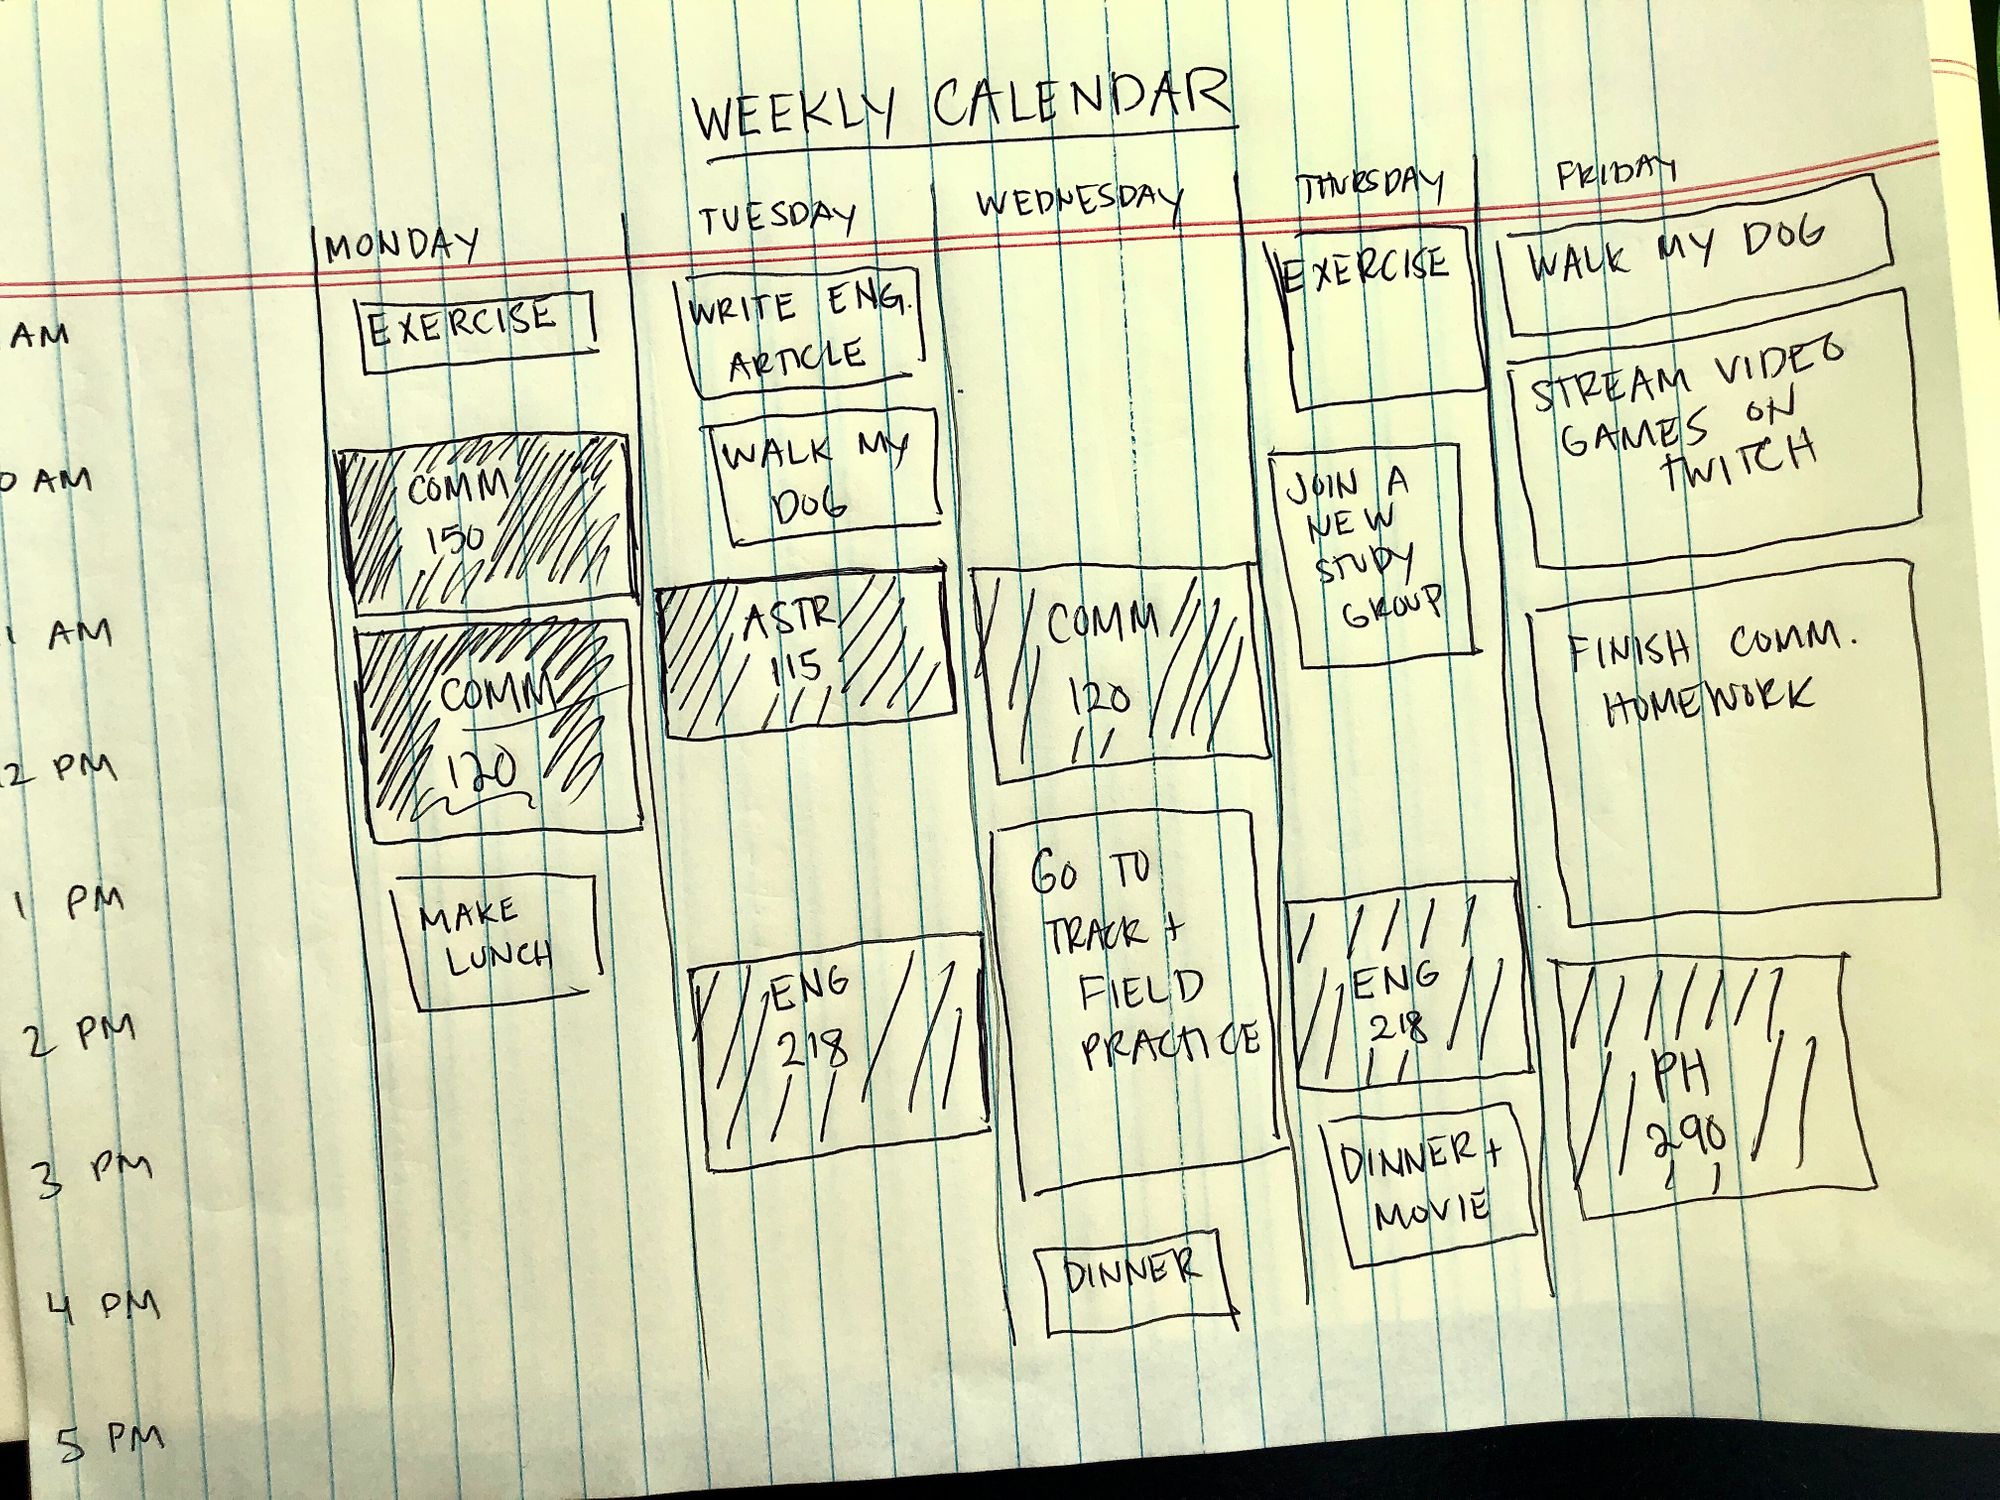 WEEKLY CALENDAR
MONDAY
TUESDAY
WEDNESDAY
THURSDAY
FRIDAY
AM
0 AM
1 AM
2 PM
1 PM
2 PM
3 PM
4 PM
5 PM
EXERCISE
COMM
150
COMM
120
MAKE
LUNCH
WRITE ENG.
ARTICLE
WALK MY
DOG
ASTR
115
ENG
218
COMM
120
GO TO
TRACK +
FIELD
PRACTICE
DINNER
EXERCISE
JOIN A
NEW
STUDY
GROUP
ENG
218
DINNER +
MOVIE
WALK MY DOG
STREAM VIDEO
GAMES ON
TWITCH
FINISH COMM.
HOMEWORK
PH
290